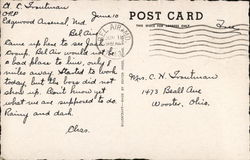 A. C. Troutman
ORP
Edgewood Arsenal, Md. June 10
Bel Air
Came up here to see Jack
Camp. Bel Air would not be
a bad place to live, only 8
miles away. Started to work
today but the boss did not
show up. Don't know yet
what we are supposed to do
Rainy and dark.
Chas.
POST CARD
BEL AIR, MD.
Free
Mrs. C. H. Troutman
1473 Beall Ave
Wooster, Ohio.